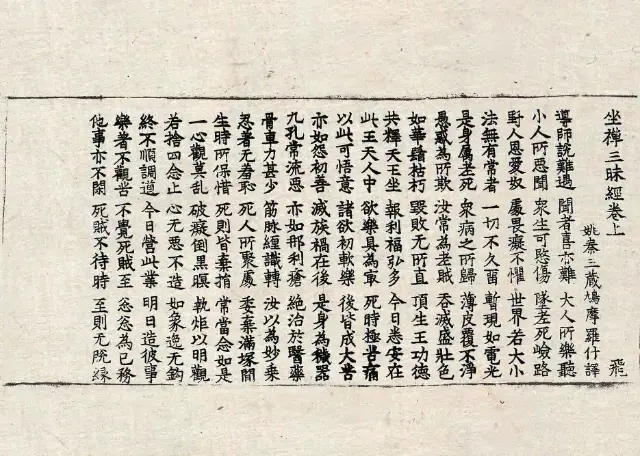 坐禪三昧經卷上
姚秦三藏鳩摩羅什譯 飛
導師說難遇 聞者喜亦難 大人所樂聽
小人所惡聞 衆生可愍傷 墜老死嶮路
野人恩愛奴 處畏癡不懼 世界若大小
法無有常者 一切不久留 暫現如電光
是身屬老死 衆病之所歸 薄皮覆不淨
愚惑為所欺 汝常為老賊 吞滅盛壯色
如華鬘枯朽 毀敗无所直 頂生王功德
共釋天王坐 報利福弘多 今日悉安在
此王天人中 欲樂具為最 死時極苦痛
以此可悟意 諸欲初軟樂 後皆成大苦
亦如怨初善 滅族禍在後 是身為穢器
九孔常流惡 亦如那利瘡 絕治於醫藥
骨車力甚少 筋脉經識轉 汝以為妙乘
忍著无羞恥 死人所聚處 委棄滿塚間
生時所保惜 死則皆棄捐 常當念如是
一心觀莫亂 破癡倒黑暝 執炬以明觀
若捨四念止 心无惡不造 如象逸无鈎
終不順調道 今日營此業 明日造彼事
樂著不觀苦 不覺死賊至 忩忩為已務
他事亦不閑 死賊不待時 至則无脫緣